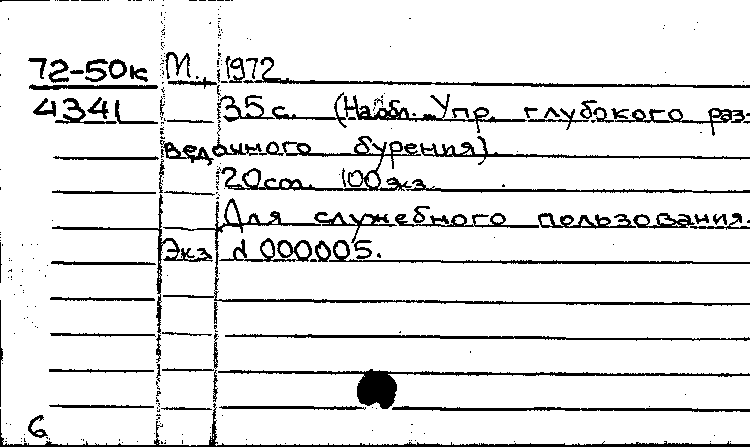 72-50к М., 1972.
4341 35 с. (На обл. Упр. глубокого раз-
ведочного бурения).
20 см. 100 экз.
Для служебного пользования.
Экз d 000005.
6